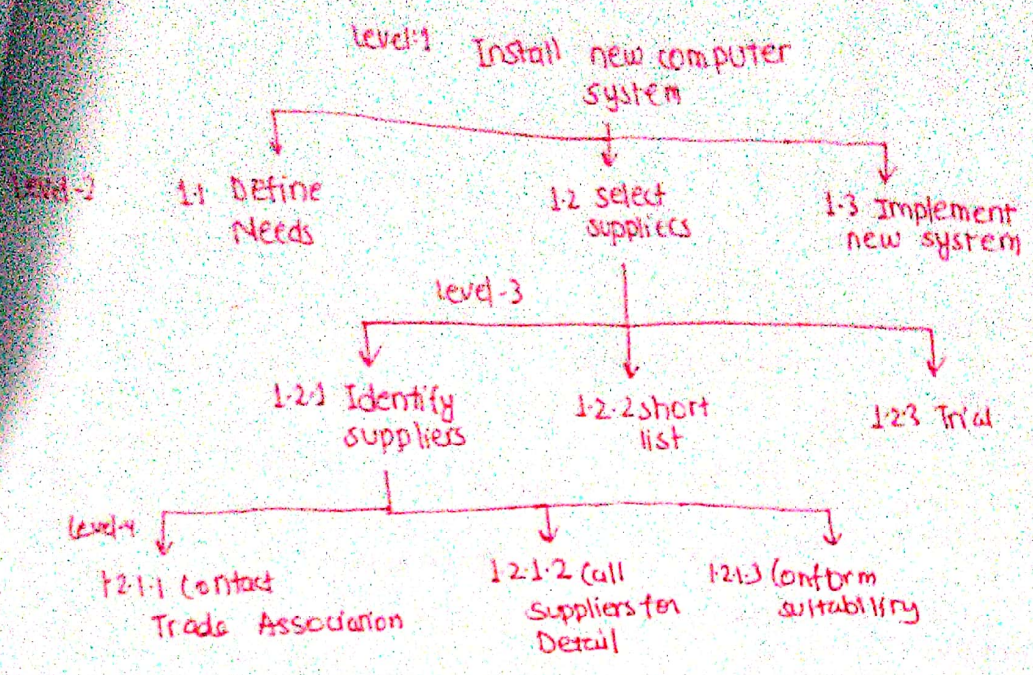 Level:1 Install new computer
system
Level-2 1.1 Define
Needs
1.2 select
suppliers
1.3 Implement
new system
Level-3
1.2.1 Identify
suppliers
1.2.2 short
list
1.2.3 Trial
Level-4
1.2.1.1 Contact
Trade Association
1.2.1.2 Call
suppliers for
Detail
1.2.1.3 Conform
suitability